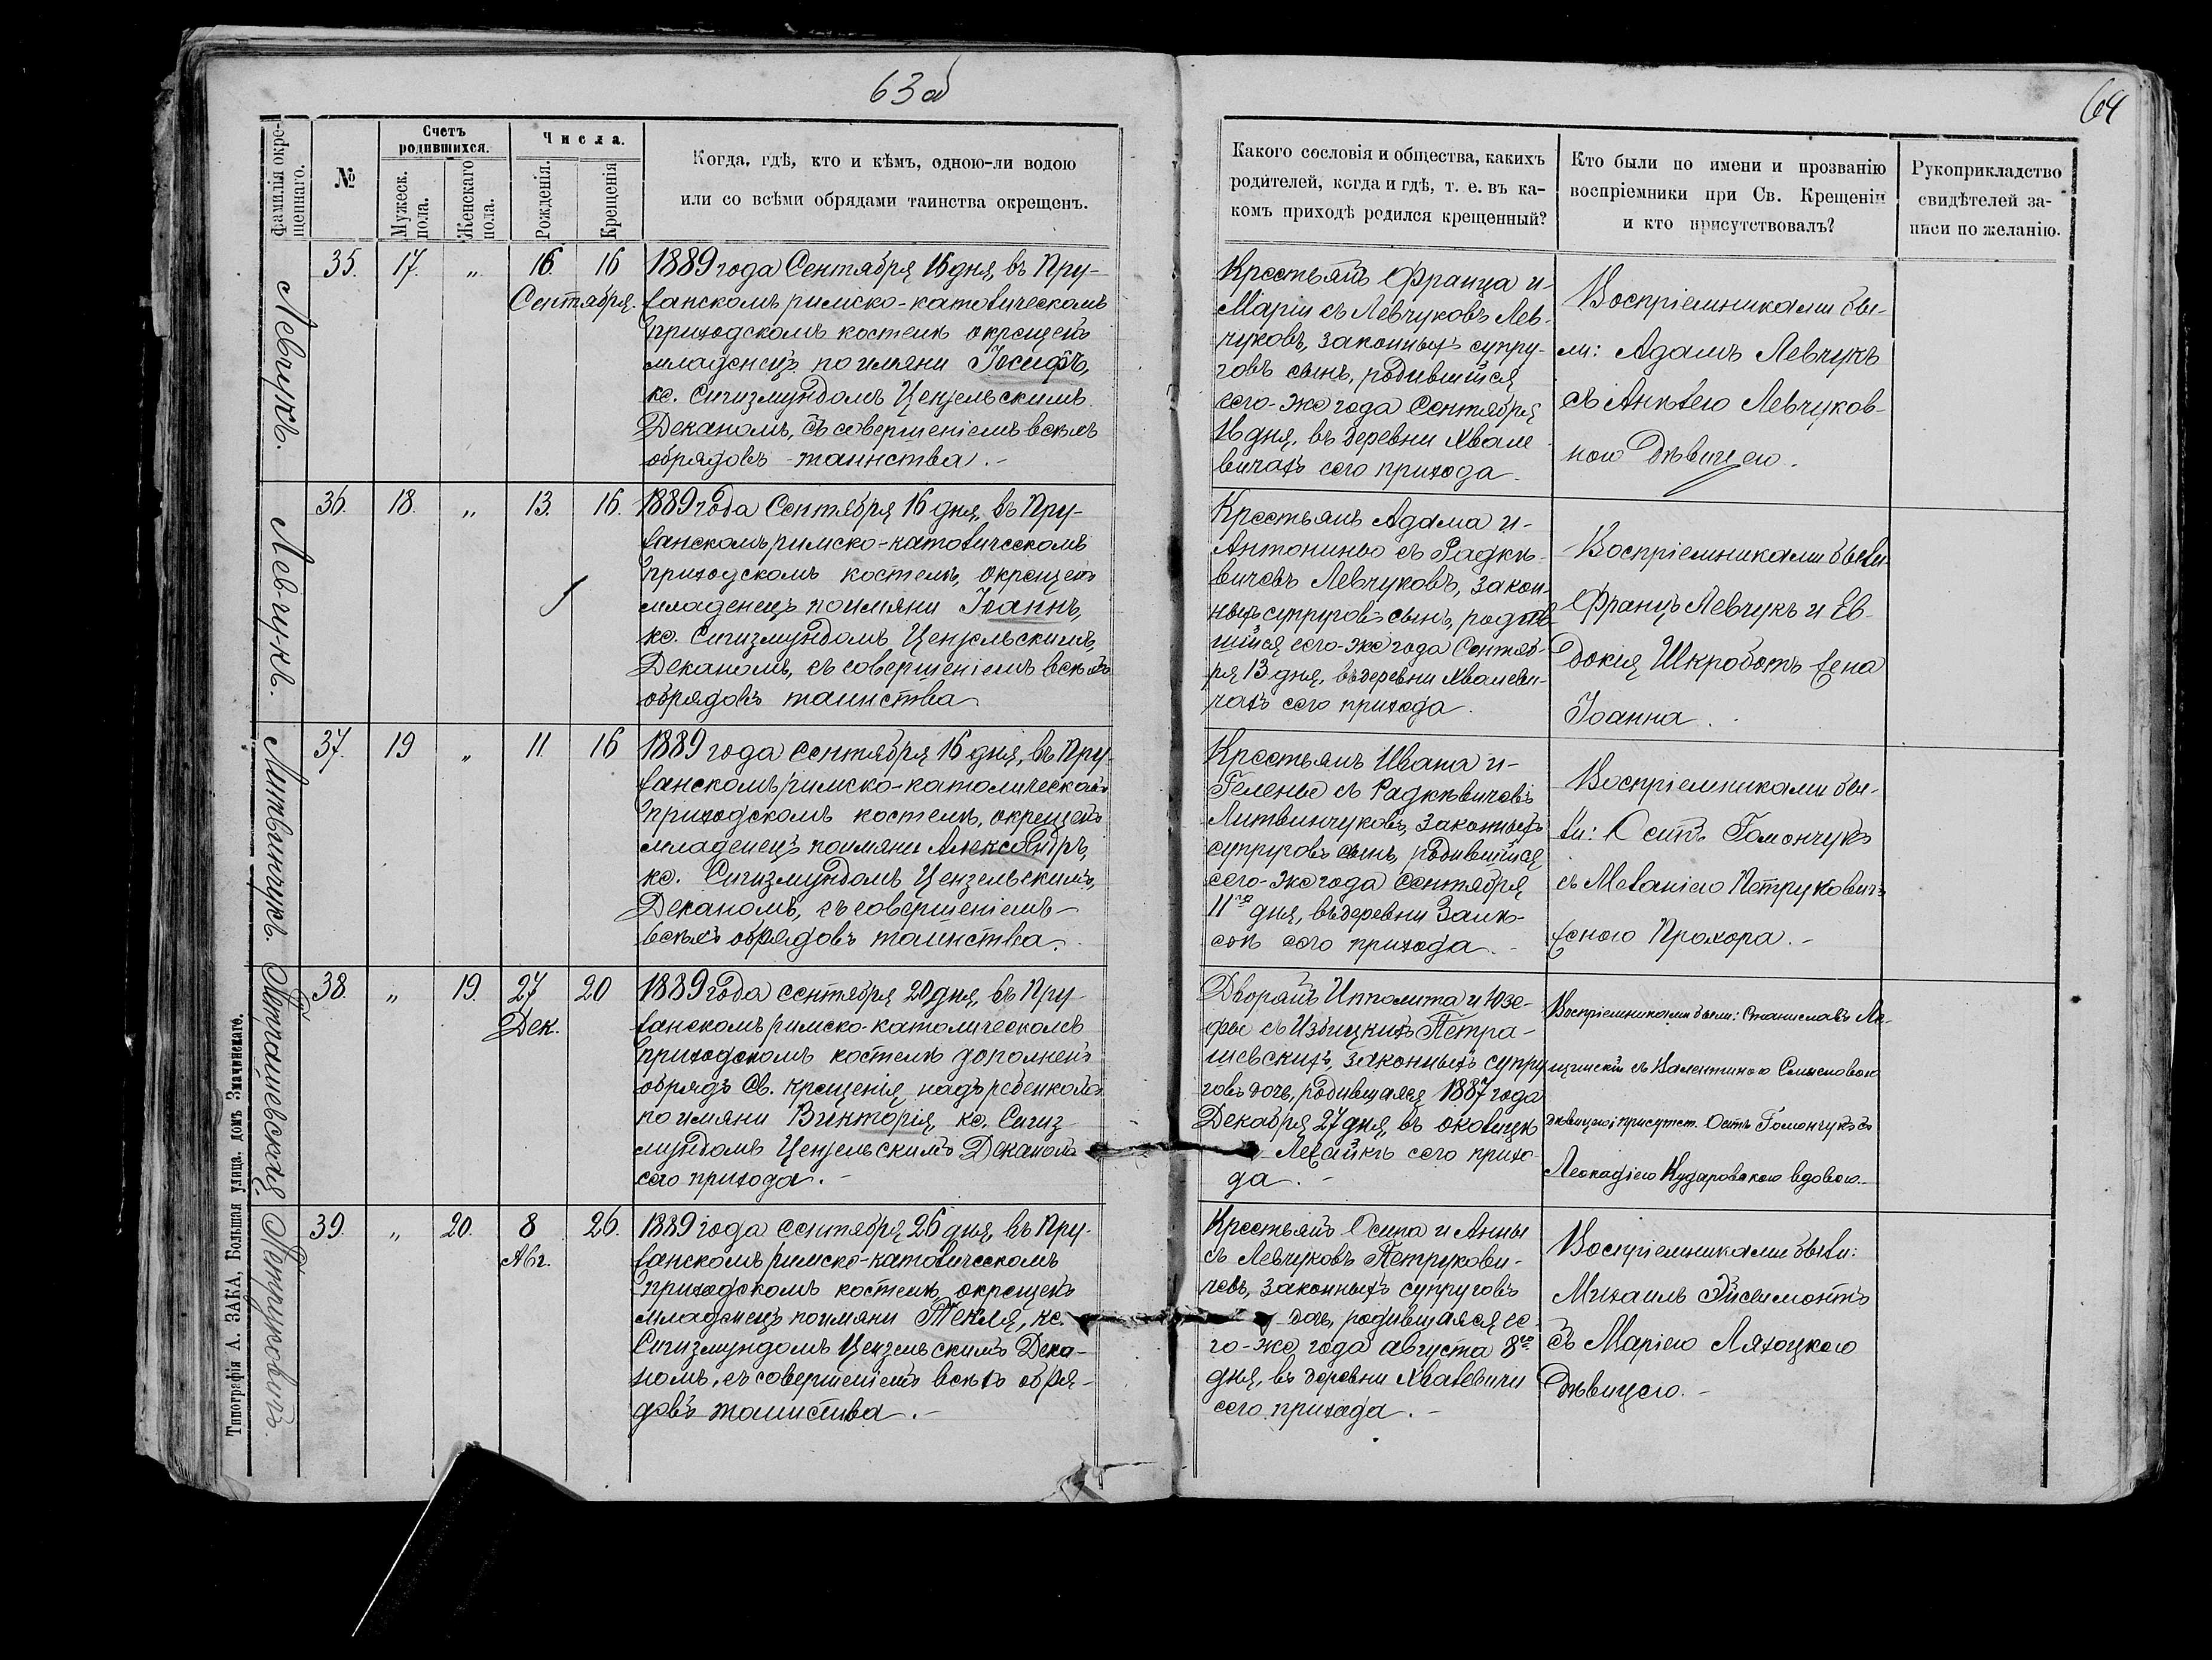 63 об
64
Фамилія окре-
щеннаго.
№
Счетъ
родившихся.
Мужеск.
пола.
Женскаго
пола.
Числа.
Рожденія.
Крещенія
Когда, гдѣ, кто и кѣмъ, одною-ли водою
или со всѣми обрядами таинства окрещенъ.
Какого сословія и общества, какихъ
родителей, когда и гдѣ, т. е. въ ка-
комъ приходѣ родился крещенный?
Кто были по имени и прозванію
воспріемники при Св. Крещеніи
и кто присутствовалъ?
Рукоприкладство
свидѣтелей за-
писи по желанію.
Левчукъ.
35. 17. „ 16. 16
Сентября.
1889 года Сентября 16 дня, въ Пру-
жанскомъ римско-католическомъ
приходскомъ костелѣ окрещенъ
младенецъ по имяни Іосифъ,
кс. Сигизмундомъ Цензельскимъ
Деканомъ, съ совершеніемъ всѣхъ
обрядовъ таинства.-
Крестьянъ Франца и-
Маріи съ Левчуковъ Лев-
чуковъ, законныхъ супру-
говъ сынъ, родившійся
сего-же года Сентября
16 дня, въ деревни Хвале
вичахъ сего прихода.
Воспріемниками бы-
ли: Адамъ Левчукъ
съ Анѣлею Левчуков-
ною Дѣвицею.
Левчукъ.
36. 18. „ 13. 16.
1889 года Сентября 16 дня, въ Пру-
жанскомъ римско-католическомъ
приходскомъ костелѣ, окрещенъ
младенецъ по имяни Іоаннъ,
кс. Сигизмундомъ Цензельскимъ,
Деканомъ, съ совершеніемъ всѣхъ
обрядовъ таинства
Крестьянъ Адама и-
Антонины съ Радкѣ-
вичевъ Левчуковъ, закон-
ныхъ супруговъ сынъ, родив-
шійся сего-же года Сентяб-
ря 13 дня, въ деревни Хвалеви-
чахъ сего прихода.
Воспріемниками были
Францъ Левчукъ и Ев-
докія Шкроботъ жена
Іоанна.
Литвинчукъ.
37. 19 „ 11. 16
1889 года Сентября 16 дня, въ Пру-
жанскомъ римско-католическомъ
приходскомъ костелѣ, окрещенъ
младенецъ по имяни Александръ,
кс. Сигизмундомъ Цензельскимъ,
Деканомъ, съ совершеніемъ-
всѣхъ обрядовъ таинства.
Крестьянъ Ивана и-
Гелены съ Радкѣвичевъ
Литвинчуковъ, законныхъ
супруговъ сынъ, родившійся
сего-же года Сентября
11го дня, въ деревни
сего прихода.-
Воспріемниками бы-
ли: Осипъ Гомончукъ
съ Меланіею Петруковичъ
женою Прохора.-
Петрашевская
38. „ 19. 27 20
Дек.
1889 года сентября 20 дня, въ Пру
жанскомъ римско-католическомъ
приходскомъ костелѣ дополненъ
обрядъ Св. Крещенія надъ ребенкомъ
по имяни Викторія, кс. Сигиз
мундомъ Цензельскимъ Деканомъ
сего прихода.-
Дворянъ Ипполита и Юзе-
фы съ Избицкихъ Петра-
шевскихъ, законныхъ супру
говъ дочь, родившаяся 1887 года
Декабря 27 дня, въ околицѣ
сего прихо-
да.-
Воспріемниками были: Станиславъ
съ Валентиною
дѣвицею; присутст. Осипъ Гомончукъ съ
Леокадіею вдовою.
Петруковичъ.
39. „ 20. 8 26.
Авг.
1889 года сентября 26 дня, въ Пру-
жанскомъ римско-католическомъ
приходскомъ костелѣ окрещенъ
младенецъ по имяни Текля, кс.
Сигизмундомъ Цензельскимъ Дека-
номъ, съ совершеніемъ всѣхъ обря-
довъ таинства.-
Крестьянъ Осипа и Анны
съ Левчуковъ Петрукови-
чевъ, законныхъ супруговъ
дочь, родившаяся се-
го-же года августа 8го
дня, въ деревни Хвалевичи
сего прихода.-
Воспріемниками были:
Михаилъ Эйсимонтъ
съ Маріею Ляхоцкою
Дѣвицею.-
Типографія А. ЗАКА, Большая улица. домъ Значинскаго.